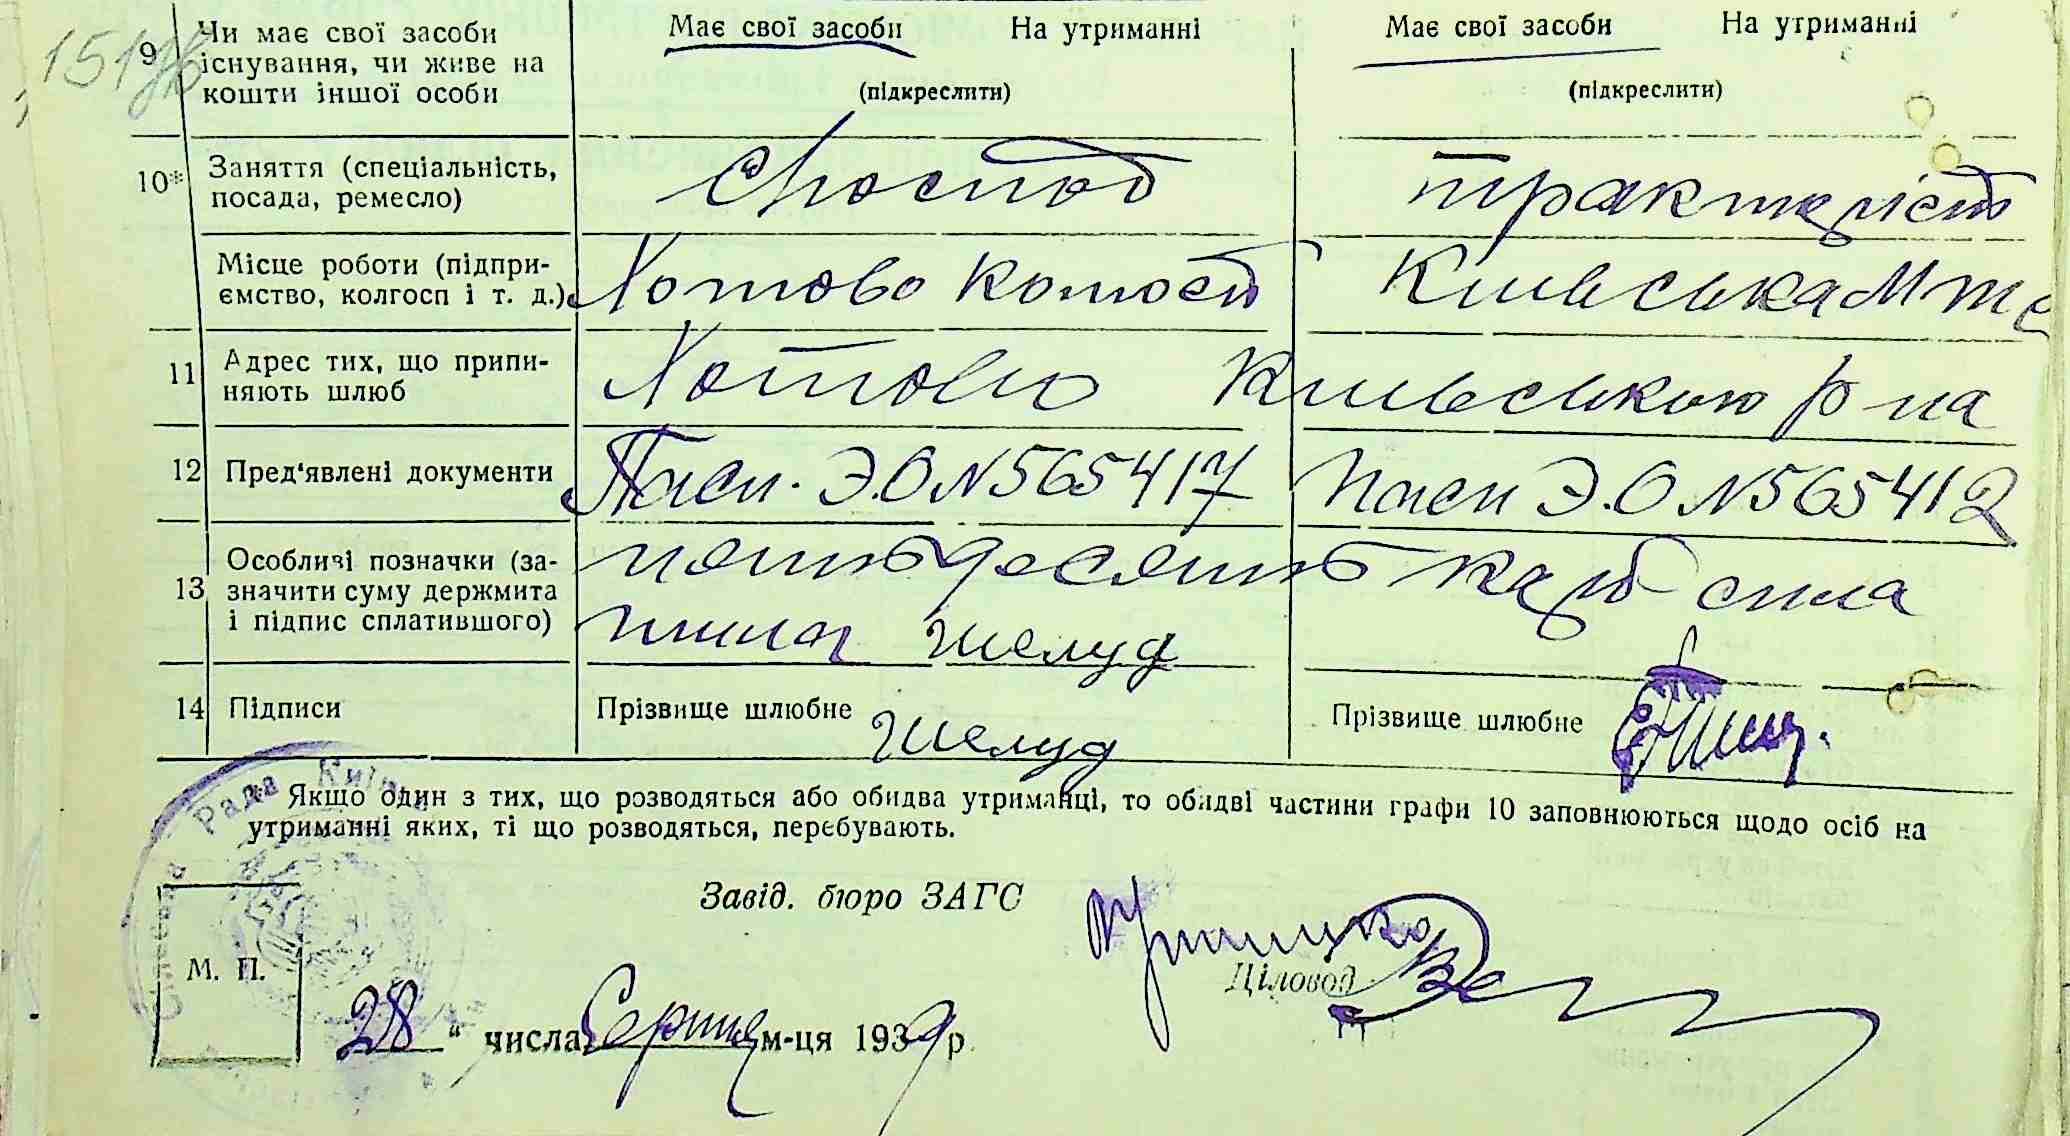 151
9 Чи має свої засоби існування, чи живе на кошти іншої особи
Має свої засоби На утриманні
(підкреслити)
Має свої засоби На утриманні
(підкреслити)
10* Заняття (спеціальність, посада, ремесло)
трактаріст
Місце роботи (підпри-
ємство, колгосп і т. д.)
Хотово
Киівська Мтс
11 Адрес тих, що припи-
няють шлюб
Хотово Киівського р на
12 Пред'явлені документи
Пасп. Э.О N 565417
Пасп Э.О N 565412
13 Особливі позначки (за-
значити суму держмита
і підпис сплатившого)
пятьдесять карб спла
тила Шелуд
14 Підписи
Прізвище шлюбне Шелуд
Прізвище шлюбне
* Якщо один з тих, що розводяться або обидва утриманці, то обидві частини графи 10 заповнюються щодо осіб на
утриманні яких, ті що розводяться, перебувають.
Рада Київ
Завід. бюро ЗАГС
Діловод
М. П.
28 " числа Серпня м-ця 1939 р.